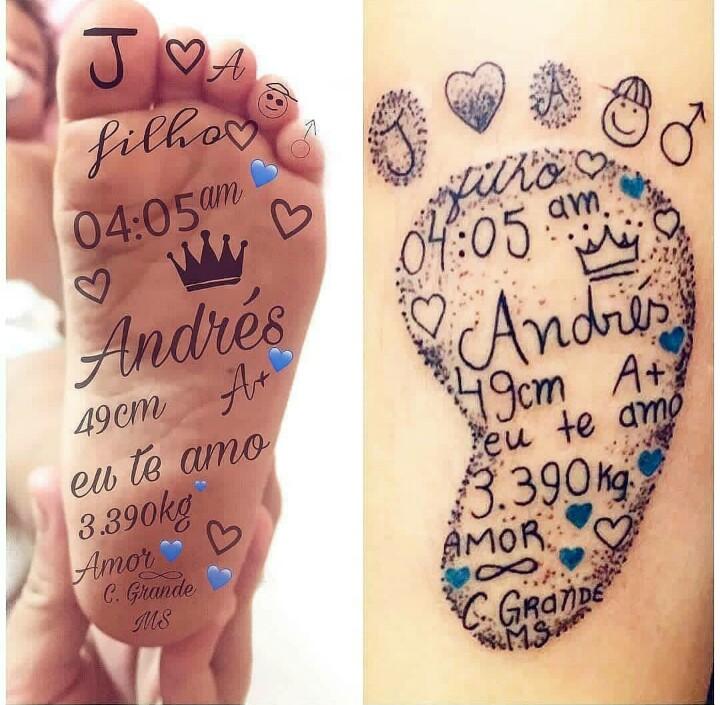 J A
filho
04:05 am
Andrés
49cm A+
eu te amo
3.390kg
Amor
C. Grande
MS
J A
filho
04:05 am
Andrés
49cm A+
eu te amo
3.390kg
AMOR
C. GRANDE
MS